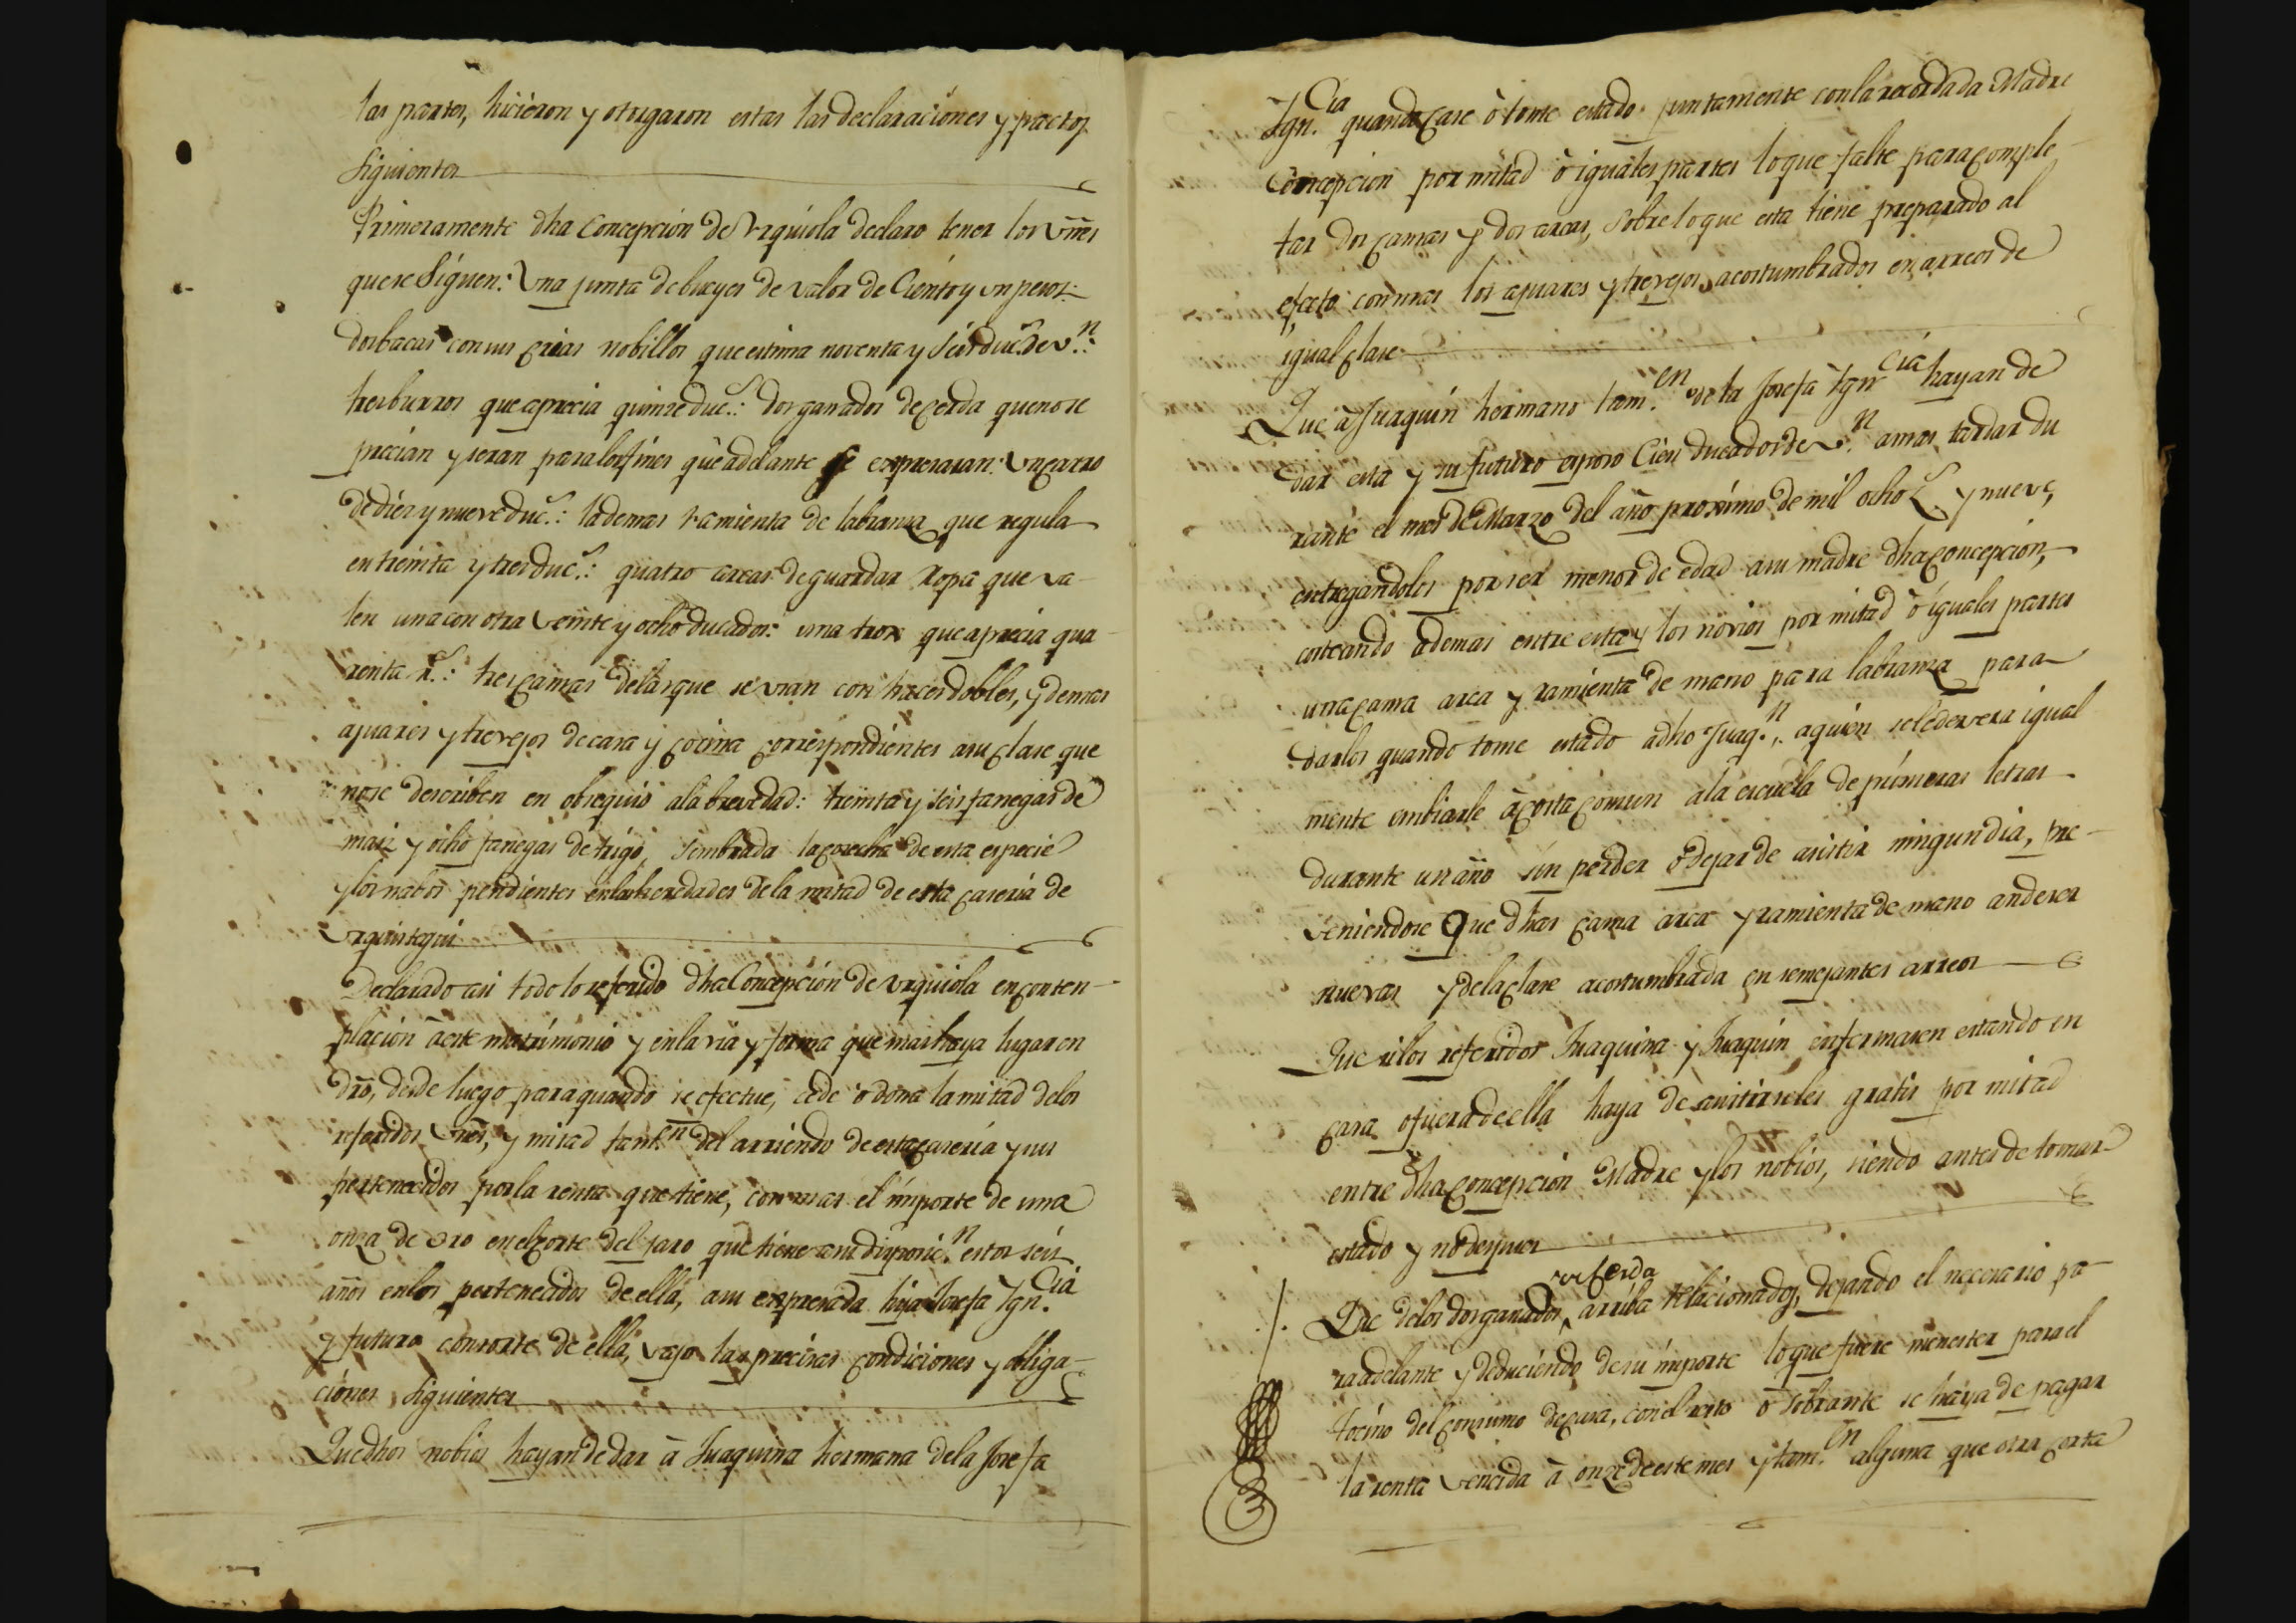 las partes, hicieron y otorgaron estas las declaraciones y pactos
siguientes
Primeramente dha Concepcion de Urquiola declaro tener los vnes
que se siguen: Una junta de bueyes de valor de Ciento y un pesos:
dos bacas con sus crias nobillos que estima noventa y seis duc.s de v.n:
tres burros que aprecia quinze duc.s: dos ganados de cerda que no se
precian y seran para los fines que adelante se expresaran: un carro
de diez y nueve duc.s: la demas ramienta de labranza que regula
en treinta y tres duc.s: quatro arcas de guardar Ropa que va-
len una con otra veinte y ocho ducados: una trox que aprecia qua-
renta r.s: tres camas de las que se usan con haces dobles, y demas
ajuares y trevejos de casa y cocina correspondientes a su clase que
no se describen en obsequio a la brevedad: treinta y seis fanegas de
maiz y ocho fanegas de trigo, sembrada la cosecha de esta especie
y los nabos pendientes en las heredades de la mitad de esta caseria de
Urquistegui
Declarado asi todo lo referido dha Concepcion de Urquiola en conten-
placion à este matrimonio y en la via y forma que mas haya lugar en
dro, desde luego para quando se efectue, cede ò dona la mitad de los
referidos vnes, y mitad tamb.en del arriendo de esta caseria y sus
pertenecidos por la renta que tiene, con mas el importe de una
onza de oro en el corte del jaro que tiene a su disposic.n estos seis
años en los pertenecidos de ella, a su expresada hija Josefa Ign.cia
y futuro consorte de ella, vajo las precisas condiciones y obliga-
ciones siguientes
Que dhos nobios hayan de dar à Juaquina hermana de la Josefa
Ign.cia quando case ò tome estado juntamente con la recordada Madre
Concepcion por mitad ò iguales partes lo que falte para comple-
tar dos camas y dos arcas, sobre lo que esta tiene preparado al
efecto con mas los ajuares y trevejos acostumbrados en arreos de
igual clase
Que à Juaquin hermano tam.en de la Josefa Ign.cia hayan de
dar esta y su futuro esposo Cien ducados de v.n a mas tardar du
rante el mes de Marzo del año proximo de mil ocho c.s y nueve,
entregandolos por ser menor de edad a su madre dha Concepcion,
costeando ademas entre esta y los novios por mitad ò iguales partes
una cama arca y ramienta de mano para labranza para
darlos quando tome estado a dho Juaq.n, a quien se le devera igual
mente embiarle à costa comun a la escuela de primeras letras
durante un año sin perder ò dejar de asistir ningun dia, pre-
veniendose que dhas cama arca y ramienta de mano an de ser
nuevas y de la clase acostumbrada en semejantes arreos
Que si los referidos Juaquina y Juaquin enfermasen estando en
casa o fuera de ella haya de asistirseles gratis por mitad
entre dha Concepcion Madre y los nobios, siendo antes de tomar
estado y no despues
referida
Que de los dos ganados arriba relacionados, dejando el necesario pa-
ra adelante y deduciendo de su importe lo que fuere menester para el
tocino del consumo de casa, con el resto ò sobrante se haya de pagar
la renta vencida à onze de este mes y tam.en alguna que otra corta